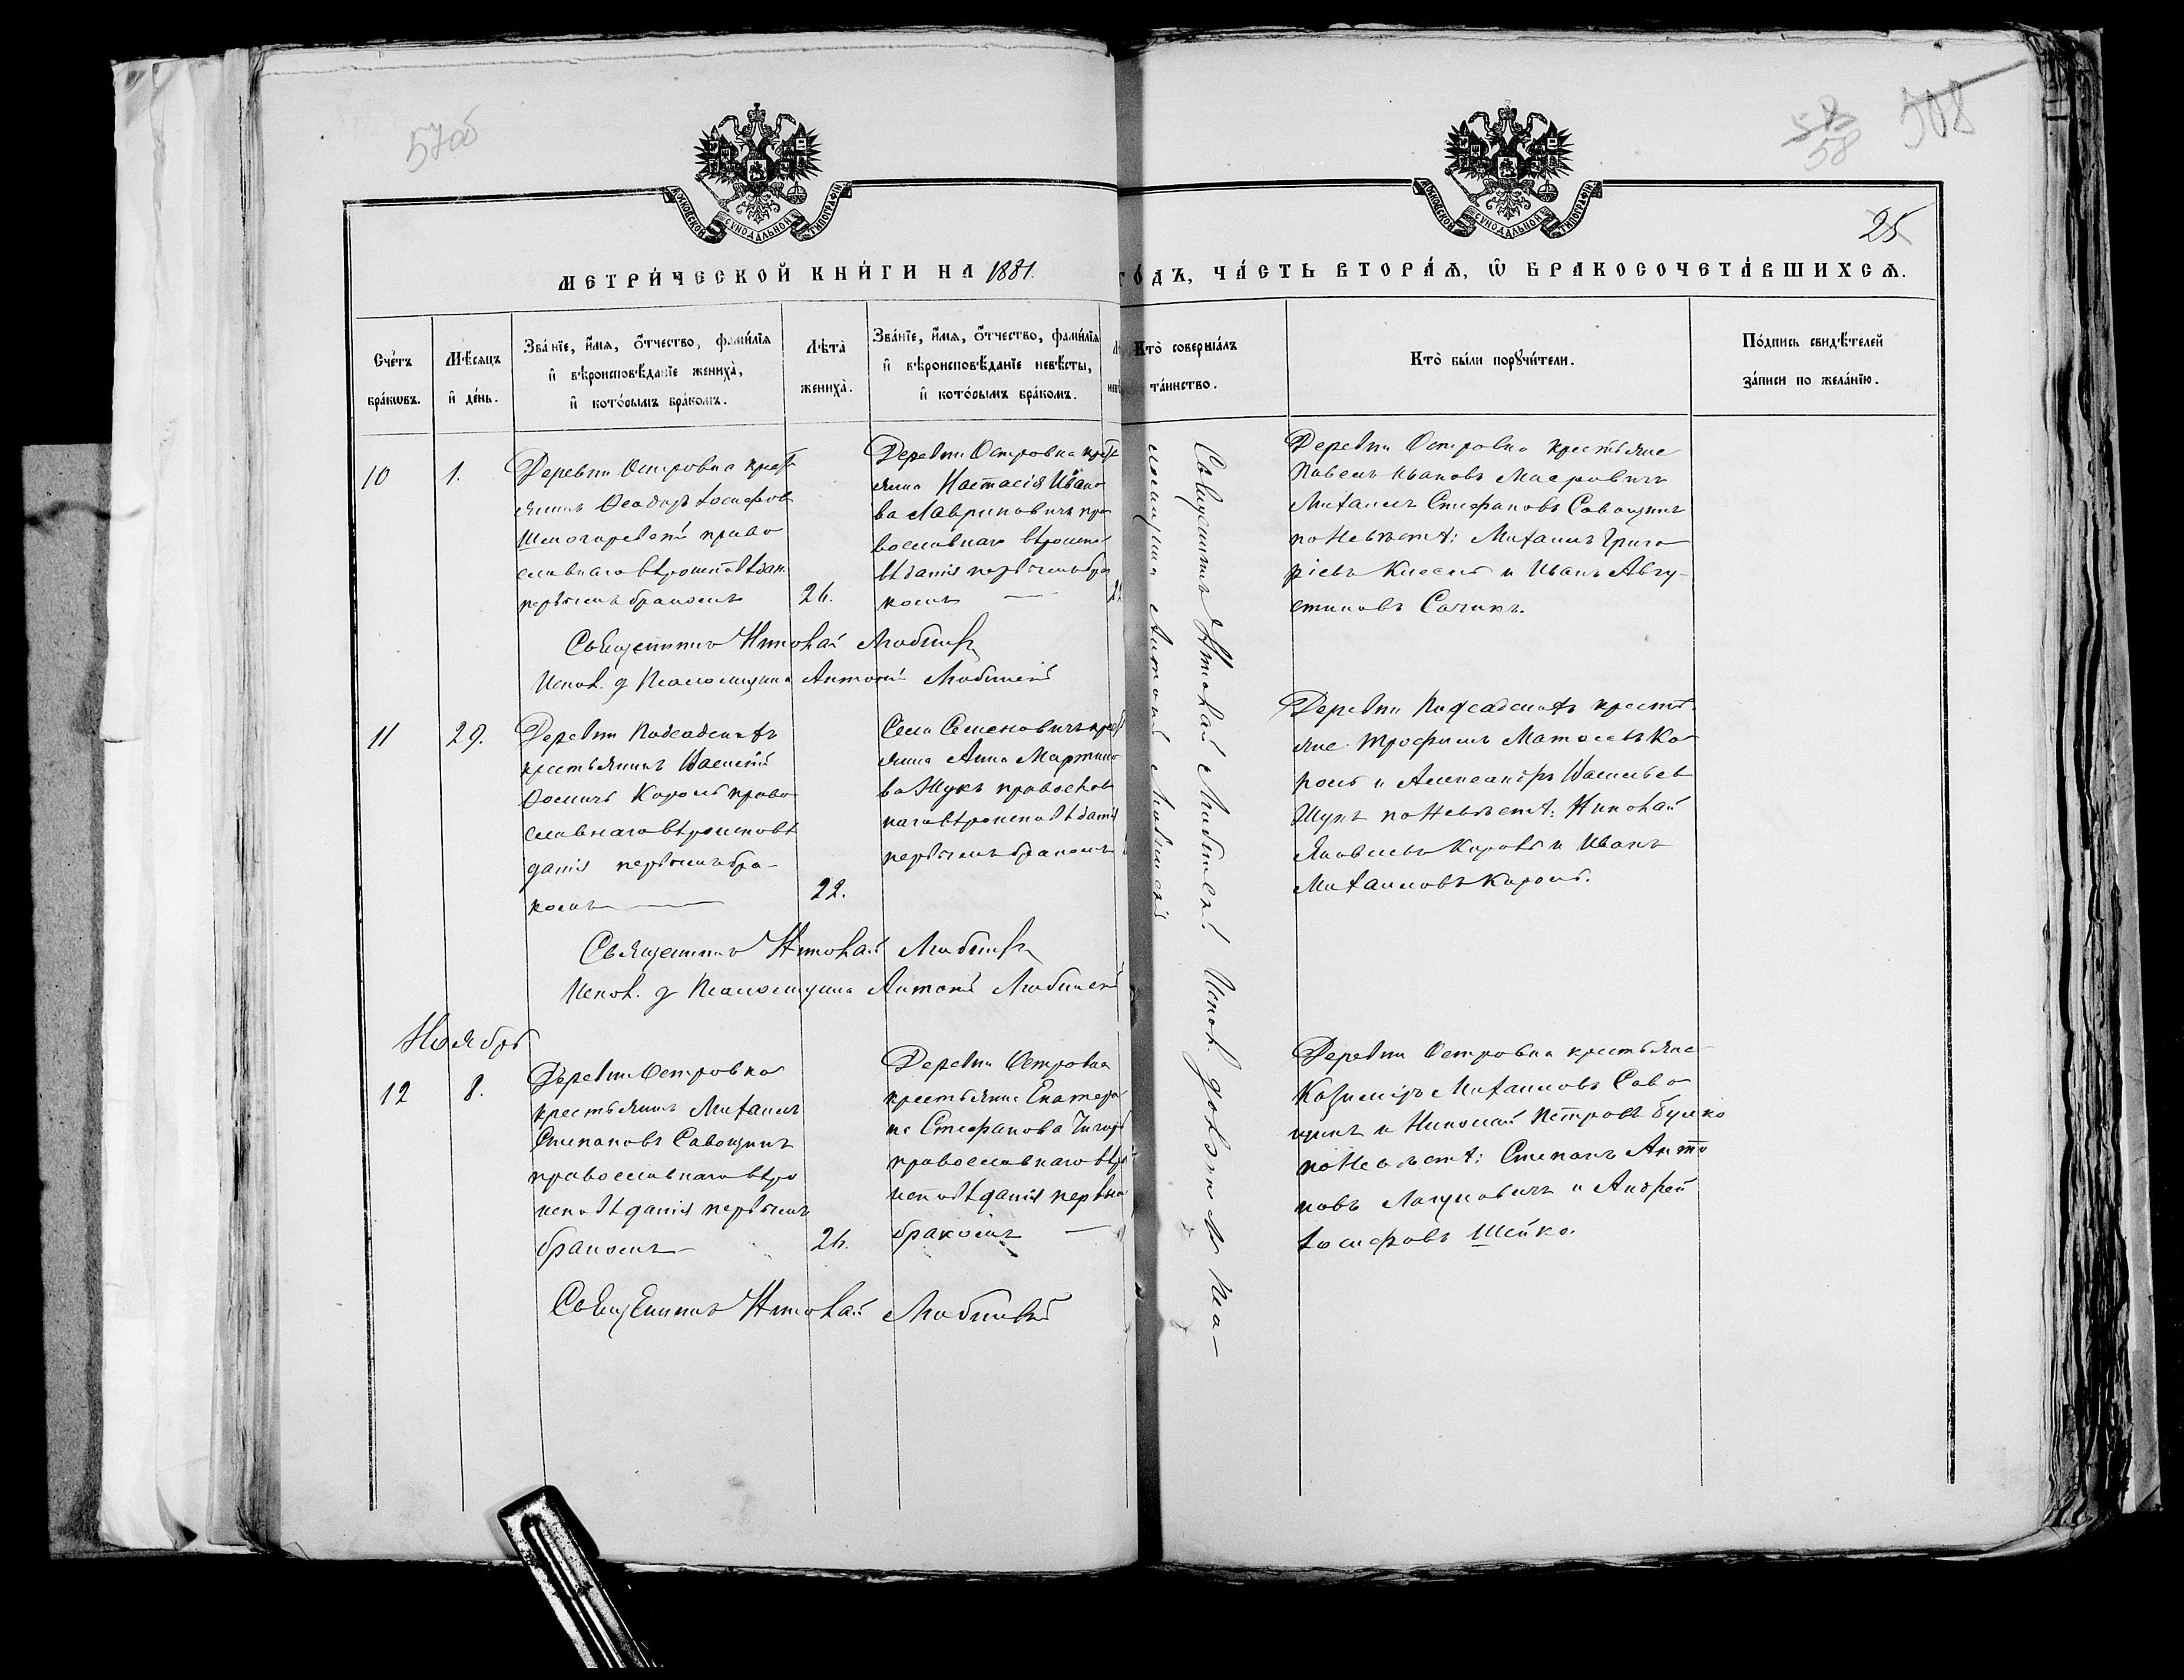 57об
58
508
25
МОСКОВСКОЙ СѴНОДАЛЬНОЙ ТИПОГРАФІИ
МОСКОВСКОЙ СѴНОДАЛЬНОЙ ТИПОГРАФІИ
МЕТРИ́ЧЕСКОЙ КНИ́ГИ НА 1881. ГО́ДЪ, ЧА́СТЬ ВТОРА́Ѧ, Ѡ҆ БРАКОСОЧЕТА́ВШИХСѦ.
Сче́тъ
бра́кѡвъ.
Мѣ́сѧцъ
и҆ де́нь.
Зва́нїе, и҆́мѧ, ѻ҆́тчество, фами́лїѧ
и҆ вѣроисповѣ́данїе жениха̀,
и҆ кото́рымъ бра́комъ.
Лѣ́та
жениха̀.
Зва́нїе, и҆́мѧ, ѻ҆́тчество, фами́лїѧ
и҆ вѣроисповѣ́данїе невѣ́сты,
и҆ кото́рымъ бра́комъ.
Кто̀ соверша́лъ
та́инство.
Кто̀ бы́ли порꙋчи́тели.
По́дпись свидѣ́телей
за́писи по жела́нїю.
10
1.
Деревни Островка крест
янинъ Ѳеодоръ Іосифов
право
славнаго вѣроисповѣдан
первымъ бракомъ
26.
Деревни Островка крест
янка Настасія Ивано
ва Лавриновичъ пра
вославнаго вѣроиспо
вѣданія первымъ бра
комъ —
Деревни Островка крестьяне
Павелъ Ивановъ
Михаилъ Стефановъ Савощикъ
по невѣстѣ: Михаилъ Григо
ріевъ и Иванъ Авгу-
стиновъ Сачикъ.
Священникъ Николай
Испол. д Псаломщика Антоній
11
29.
Деревни
крестьянинъ Василій
Ѳоминъ Король право
славнаго вѣроисповѣ
данія первымъ бра-
комъ —
22.
Села Семеновичъ крест
янка Анна Мартино
ва Жукъ православ
наго вѣроисповѣданія
первымъ бракомъ
Деревни крестья
яне Трофимъ Матвеевъ Ко
роль и Александръ Васильев
по невѣстѣ: Николай
Яковлевъ Король и Иванъ
Михаиловъ Король.
Священникъ Николай
Испол. д Псаломщика Антоній
Ноябрь
12
8.
Деревни Островка
крестьянинъ Михаилъ
Степановъ Савощикъ
православнаго вѣро
исповѣданія первымъ
бракомъ —
26.
Деревни Островка
крестьянка Екатери
на Стефанова
православнаго вѣро
исповѣданія первым
бракомъ —
Деревни Островка крестьяне
Казиміръ Михаиловъ Саво
щикъ и Николай Петровъ
по невѣстѣ: Степанъ Анто
новъ и Андрей
Іосифовъ Шейко.
Священникъ Николай
Священникъ Николай Испол. должн. Пса-
ломщика Антоній